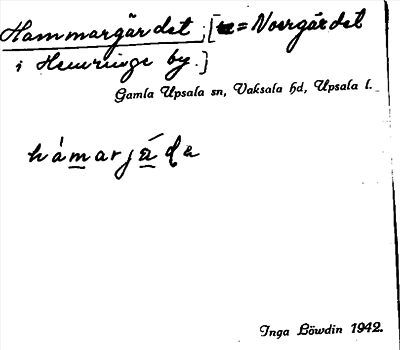 Hammargärdet, [ = Norrgärdet
i Hemringe by.]
Gamla Upsala sn, Vaksala hd, Upsala l.
hámarjä́ɖa
Inga Löwdin 1942.